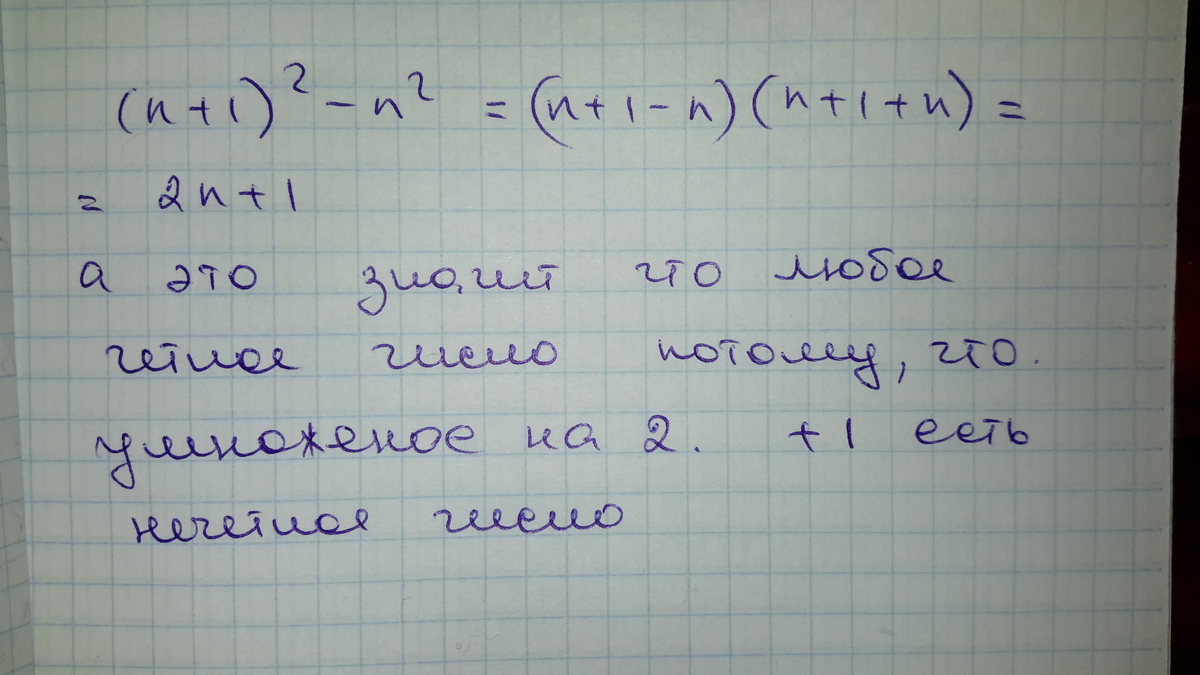 (n+1)² - n² = (n+1-n)(n+1+n) =
= 2n+1
а это значит что любое
четное число потому, что.
умноженое на 2. +1 есть
нечетное число